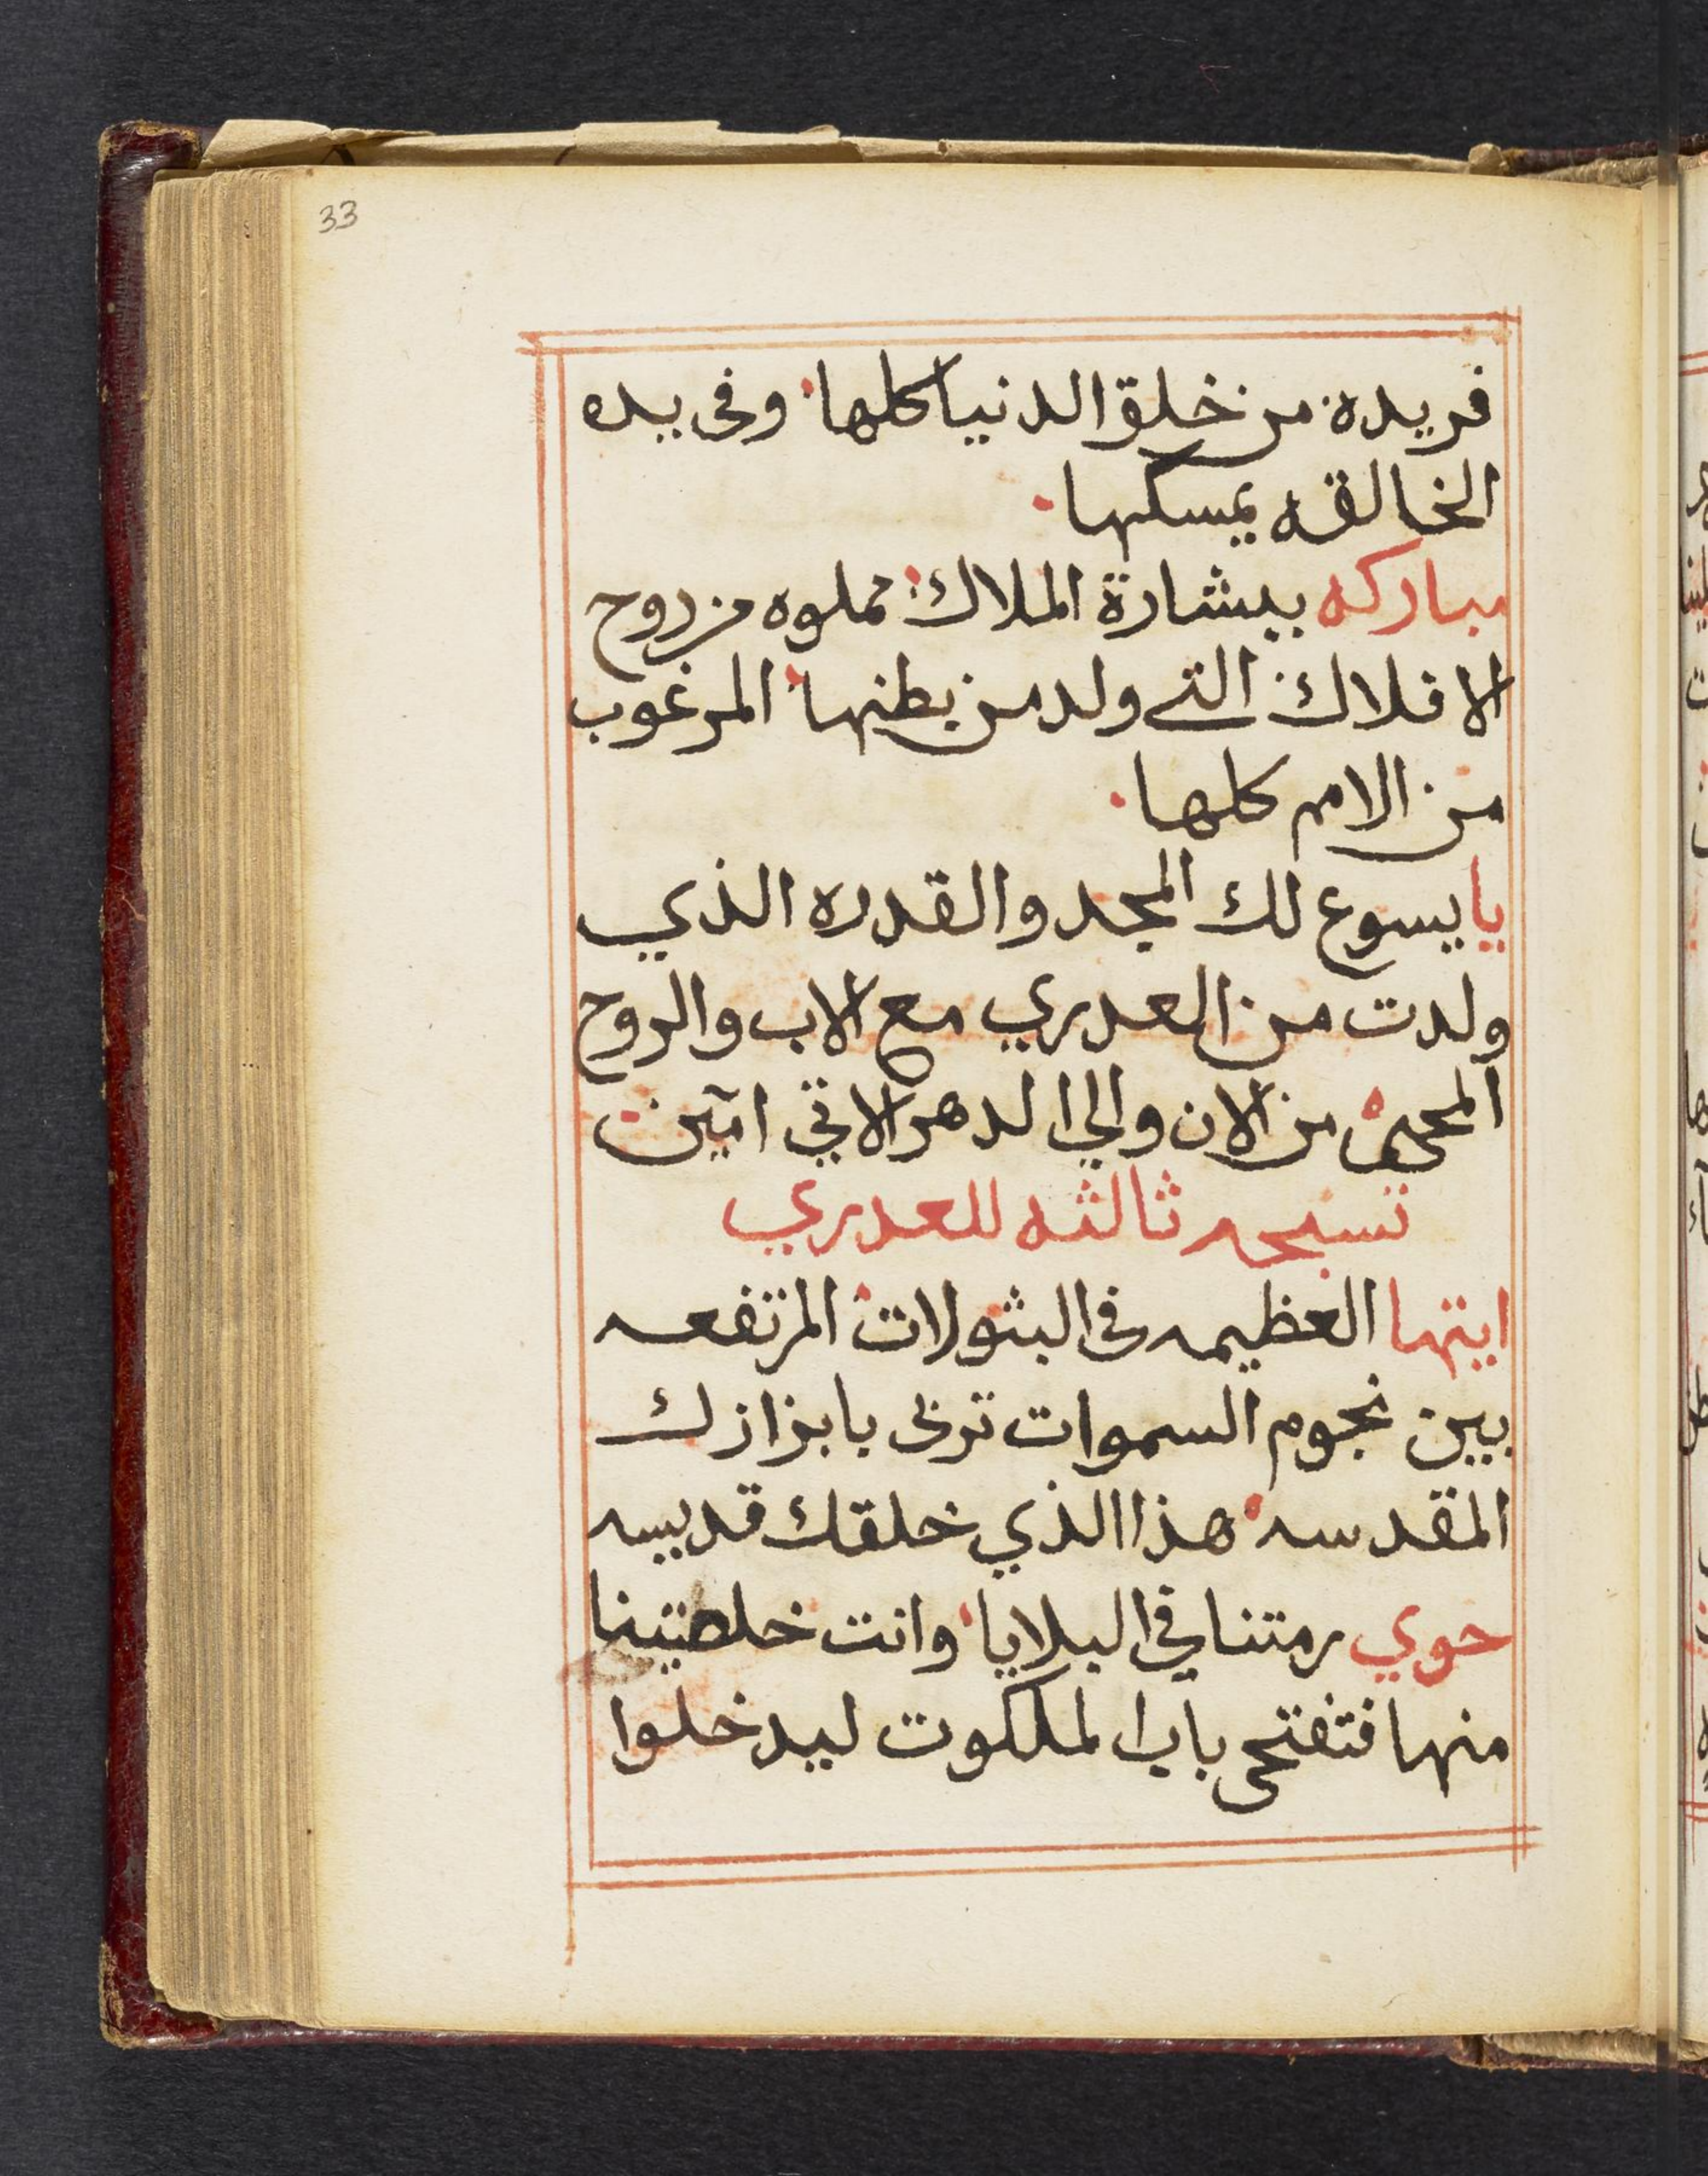 33
فريده من خلق الدنيا كلها وفى يده
الخالقه يمسكها
مباركه ببشارة الملاك مملوه من روح
الافلاك التي ولد من بطنها المرغوب
من الامم كلها
يا يسوع لك المجد والقدره الذي
ولدت من العدري مع الاب والروح
المحيى من الان والي الدهر الاتي امين
تسبحه ثالثه للعدري
ايتها العظيمه فى البثولات المرتفعه
بين نجوم السموات تربى بابزازك
المقدسه هذا الذي خلقك قديسه
حوي رمتنا في البلايا وانت خلصتينا
منها فتفتحى باب الملكوت ليدخلوا